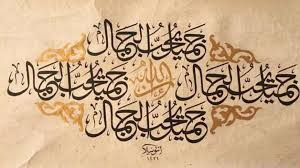 جميل يحب الجمال
جميل يحب الجمال إن الله جميل يحب الجمال
جميل يحب الجمال